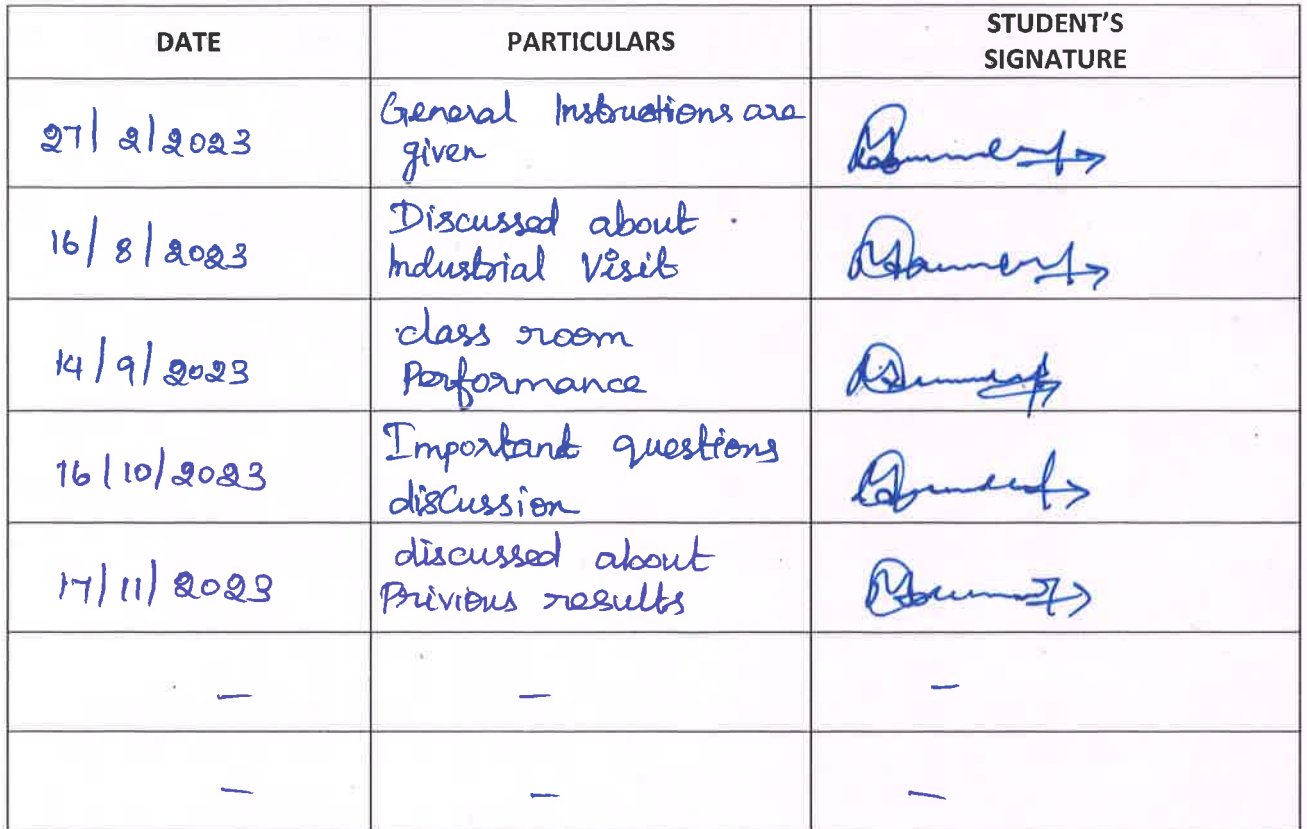 DATE PARTICULARS STUDENT'S
SIGNATURE
27/2/2023 General Instructions are
given
16/8/2023 Discussed about
Industrial Visit
14/9/2023 class room
Performance
16/10/2023 Important questions
discussion
17/11/2023 discussed about
Privious results
— — —
— — —